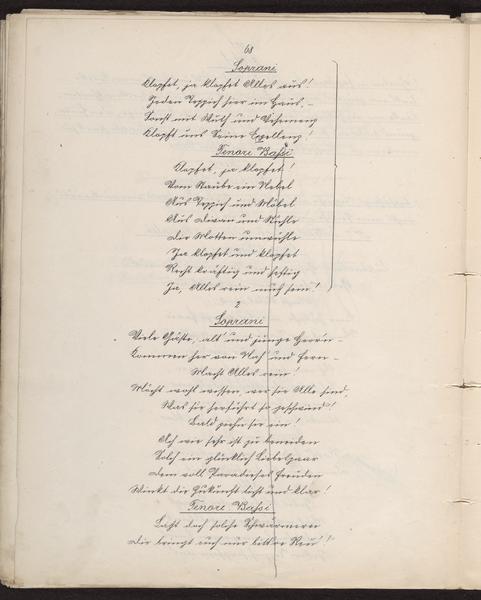 68
Soprani
Klopfet, ja klopfet Alles aus!
Jeden Teppich hier im Haus. –
Sonst mit Wuth und Vehemenz
Klopft uns Seine Exzellenz!
Tenori Bassi
Klopfet, ja klopfet!
Vom Staube ein Nebel
Aus Teppich und Möbel
Aus Divan und Stühle
Die Motten
Ja klopfet und klopfet
Recht kräftig und heftig
Ja, Alles rein muß sein!
2
Soprani
Viele Gäste, alt' und junge Herr'n –
Kommen her von Nah' und Fern –
Macht Alles rein!
Möcht' wohl wissen, wer sie Alle sind,
Was sie herführt so geschwind!
Bald ziehn sie ein!
Ach wie sehr ist zu beneiden
Solch ein glücklich Liebespaar
Dem voll Paradieses Freuden
Winkt die Zukunft licht und klar!
Tenori Bassi
Laßt doch solche Schwärmerei
Die bringt euch nur bitt're Reu'!